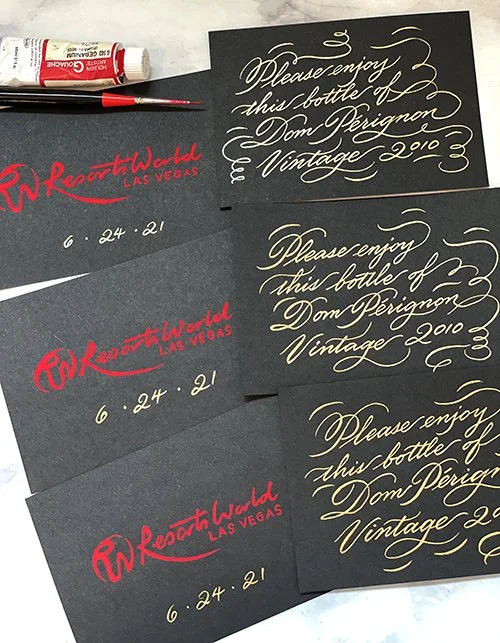 G 563 GERANIUM
HOLBEIN
ARTISTS'
GOUACHE
RW Resorts World
LAS VEGAS
6 · 24 · 21
Please enjoy
this bottle of
Dom Pérignon
Vintage 2010
RW Resorts World
LAS VEGAS
6 · 24 · 21
Please enjoy
this bottle of
Dom Pérignon
Vintage 2010
RW Resorts World
LAS VEGAS
6 · 24 · 21
Please enjoy
this bottle of
Dom Pérign
Vintage 20